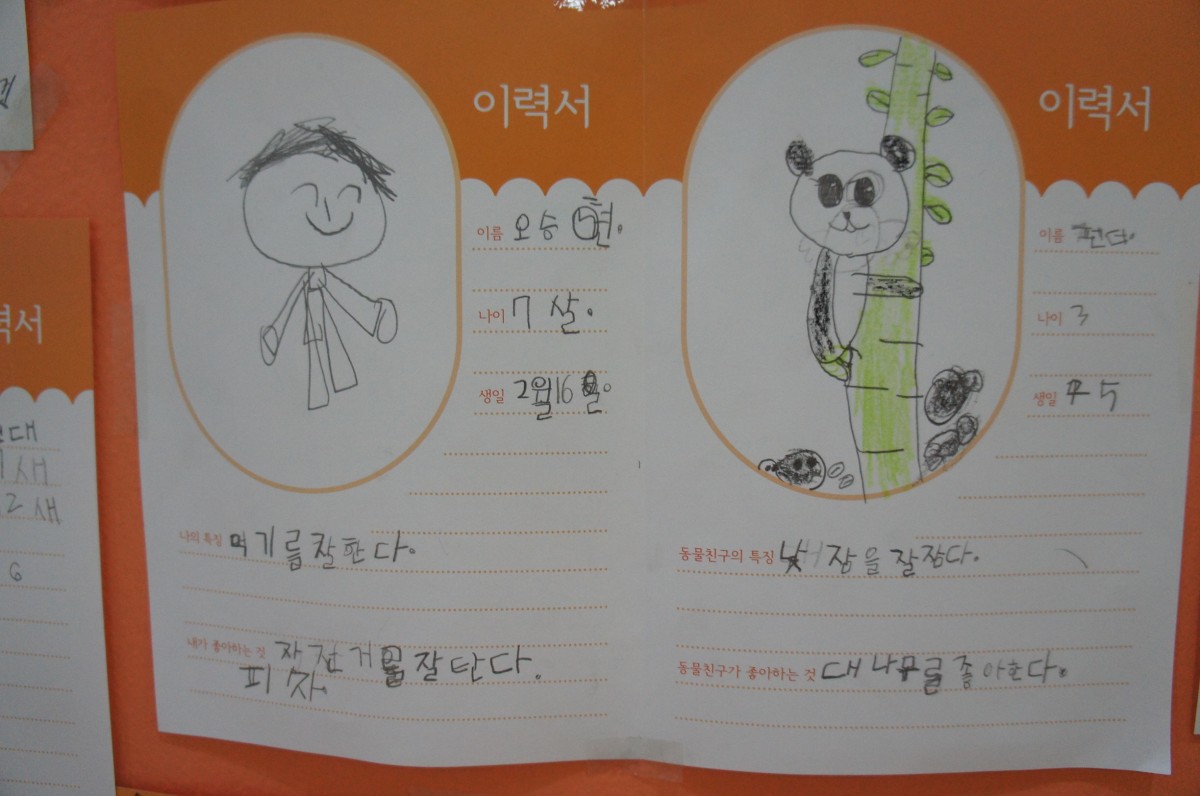 이력서
이름 오승현.
나이 7살.
생일 2월16일.
나의 특징 먹기를잘한다.
내가 좋아하는 것 자전거를잘탄다.
피자.
이력서
이름 팬다.
나이 3
생일 5
동물친구의 특징 낮잠을잘잠다.
동물친구가 좋아하는 것 대나무를좋아한다.
력서
대
새
2새
6